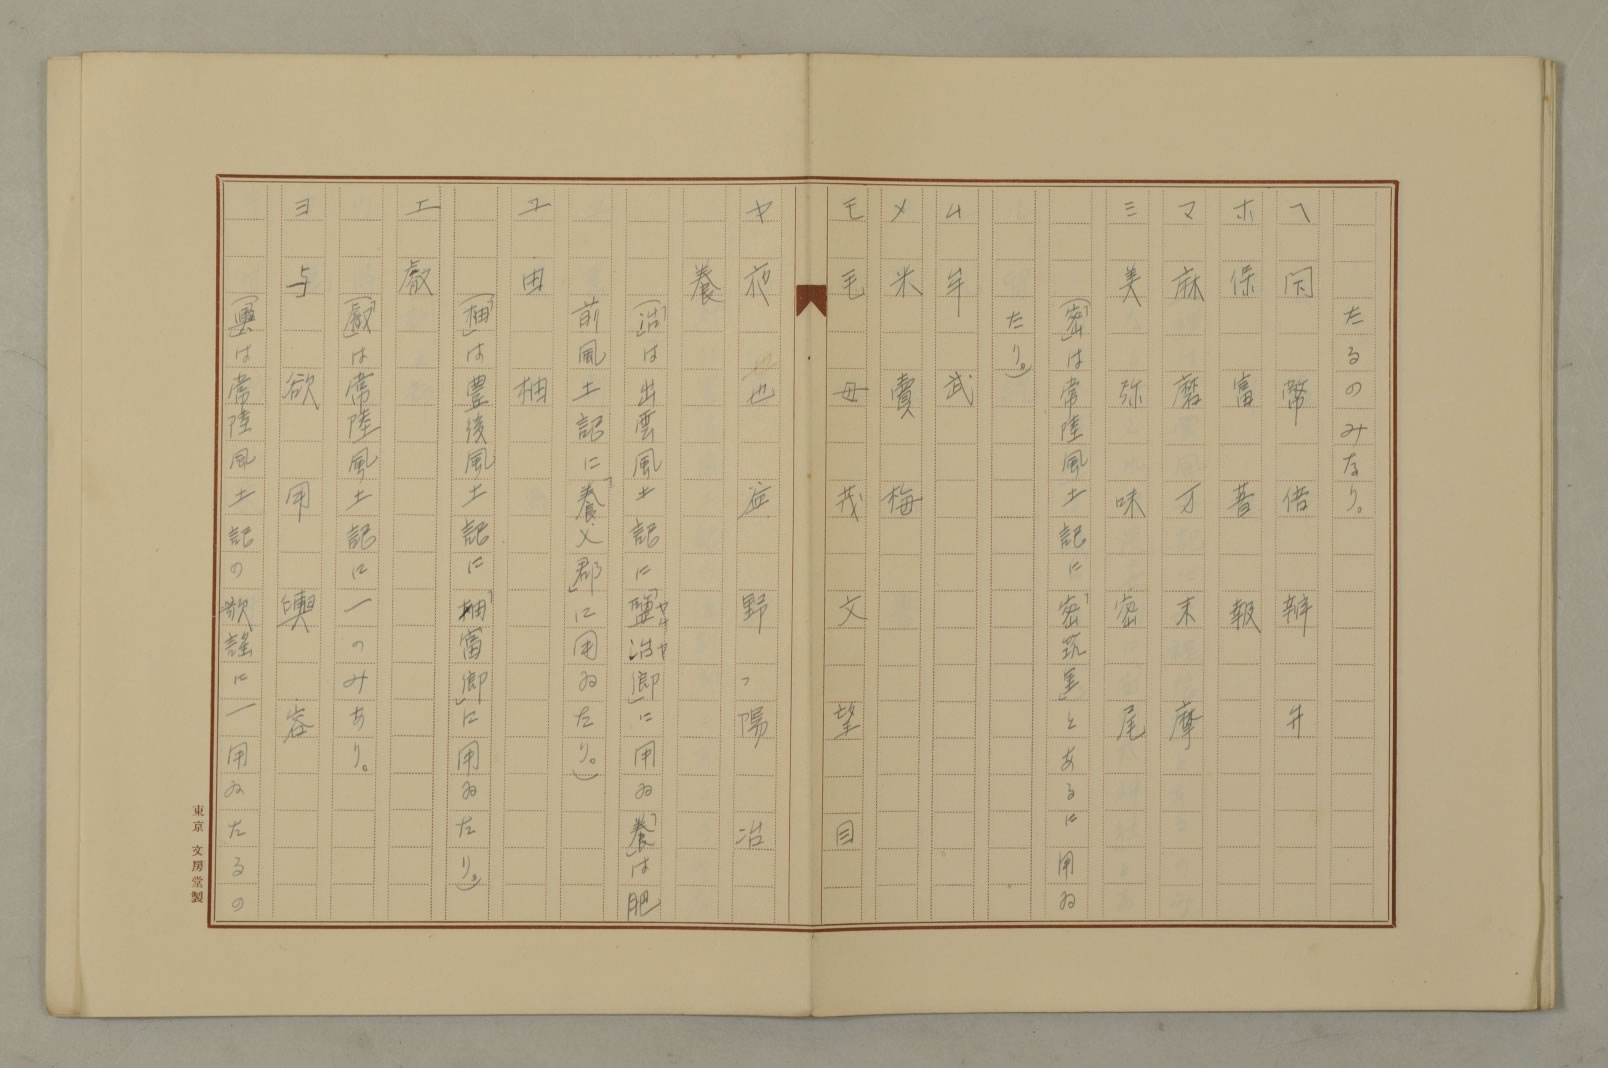 たるのみなり。
ヘ 閇 幣 倍 辨 弁
ホ 保 富 菩 報
マ 麻 磨 万 末 摩
ミ 美 弥 味 密 尾
(「密」は常陸風土記に「密筑里」とあるに用ゐ
たり。)
ム 牟 武
メ 米 賣 梅
モ 毛 母 茂 文 望 目
ヤ 夜 也 野、陽 冶
養
(「冶」は出雲風土記に「鹽冶郷」に用ゐ「養」は肥
前風土記に「養父郡」に用ゐたり。)
ユ 由 柚
(「柚」は豊後風土記に「柚富郷」に用ゐたり。)
エ 叡
(「叡」は常陸風土記に一のみあり。
ヨ 与 欲 用 輿 容
(「輿」は常陸風土記の歌謡に一用ゐたるの
東京 文房堂製